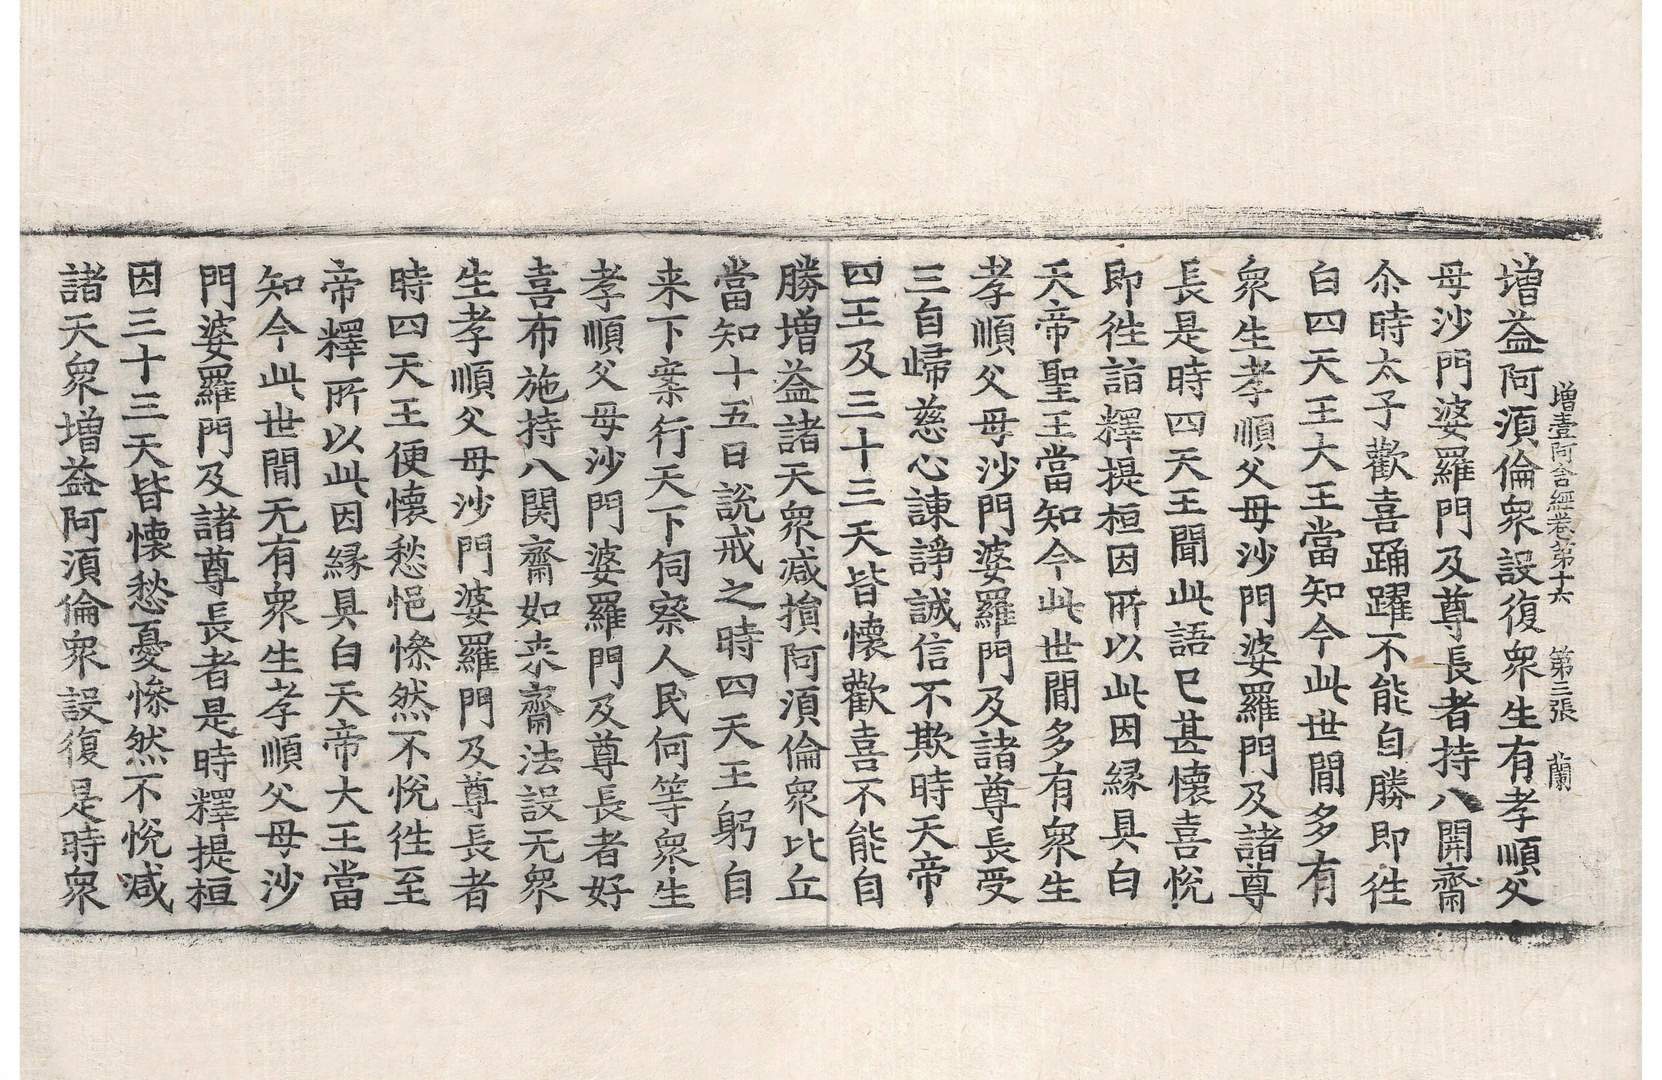 增壹阿含經卷第十六 第三張 蘭
增益阿湏倫衆設復衆生有孝順父
母沙門婆羅門及尊長者持八開齋
尒時太子歡喜踊躍不能自勝即徃
白四天王大王當知今此世間多有
衆生孝順父母沙門婆羅門及諸尊
長是時四天王聞此語已甚懷喜恱
即徃詣釋提桓因所以此因縁具白
天帝聖王當知今此世間多有衆生
孝順父母沙門婆羅門及諸尊長受
三自歸慈心諫諍誠信不欺時天帝
四王及三十三天皆懷歡喜不能自
勝增益諸天衆减損阿湏倫衆比丘
當知十五日說戒之時四天王躬自
来下案行天下伺察人民何等衆生
孝順父母沙門婆羅門及尊長者好
喜布施持八関齋如来齋法設无衆
生孝順父母沙門婆羅門及尊長者
時四天王便懷愁悒慘然不恱徃至
帝釋所以此因縁具白天帝大王當
知今此世間无有衆生孝順父母沙
門婆羅門及諸尊長者是時釋提桓
因三十三天皆懷愁憂慘然不恱减
諸天衆增益阿湏倫衆設復是時衆